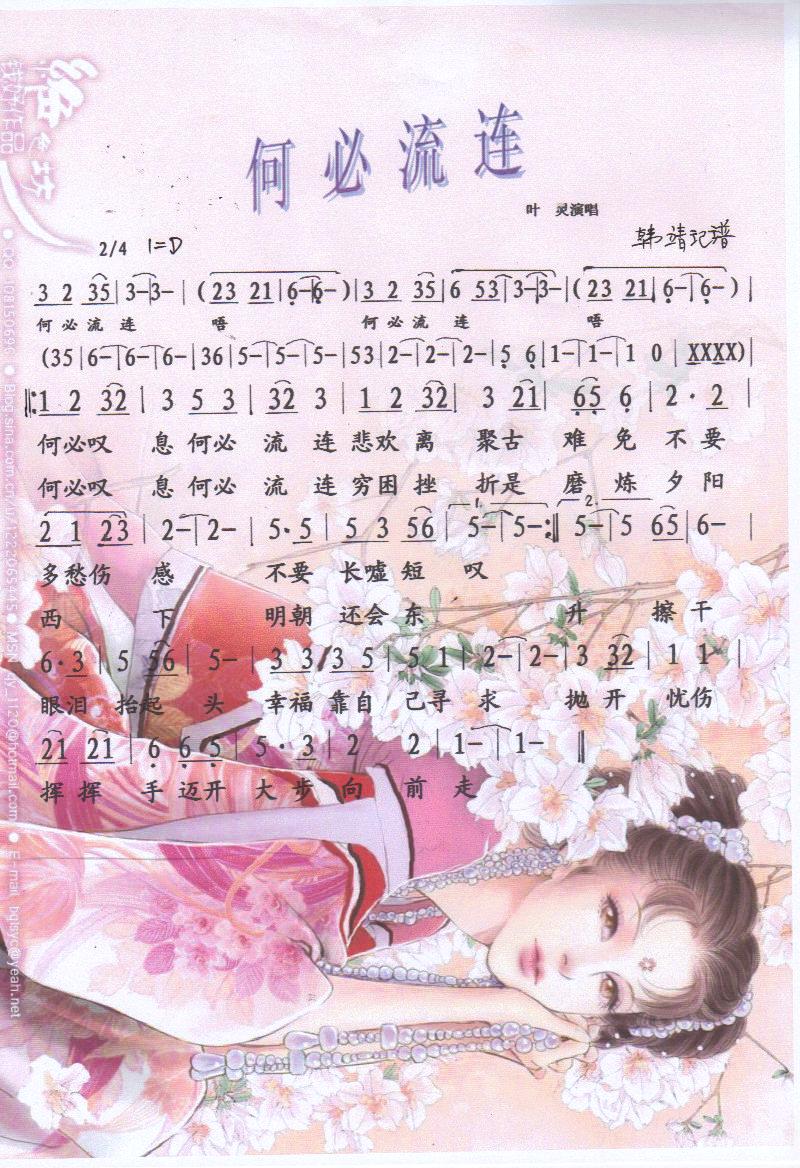 何必流连
叶 灵演唱
2/4 1=D
韩靖记谱
3 2 35|3-|3-|(23 21|6-|6-)|3 2 35|6 53|3-|3-|(23 21|6-|6-)|
何必流连 唔 何必流连 唔
(35|6-|6-|6-|36|5-|5-|5-|53|2-|2-|2-|5 6|1-|1-|1 0|XXXX)|
‖:1 2 32|3 5 3|32 3|1 2 32|3 21|65 6|2· 2|
何必叹 息何必 流 连悲欢离 聚古 难 免 不要
何必叹 息何必 流 连穷困挫 折是 磨 炼 夕阳
2 1 23|2-|2-|5·5|5 3 56|1.5-|5-:‖2.5-|5 65|6-|
多愁伤 感 不要 长嘘短 叹
西 下 明朝 还会东 升 擦干
6·3|5 56|5-|3 3/3 5|5 1|2-|2-|3 32|1 1·|
眼泪 抬起 头 幸福靠自 己寻 求 抛开 忧伤
21 21|6 6 5|5· 3|2 2|1-|1-‖
挥挥 手迈开 大步向 前 走
QQ
Blog.sina.com.cn
MSN
E-mail bqlsyc@yeah.net